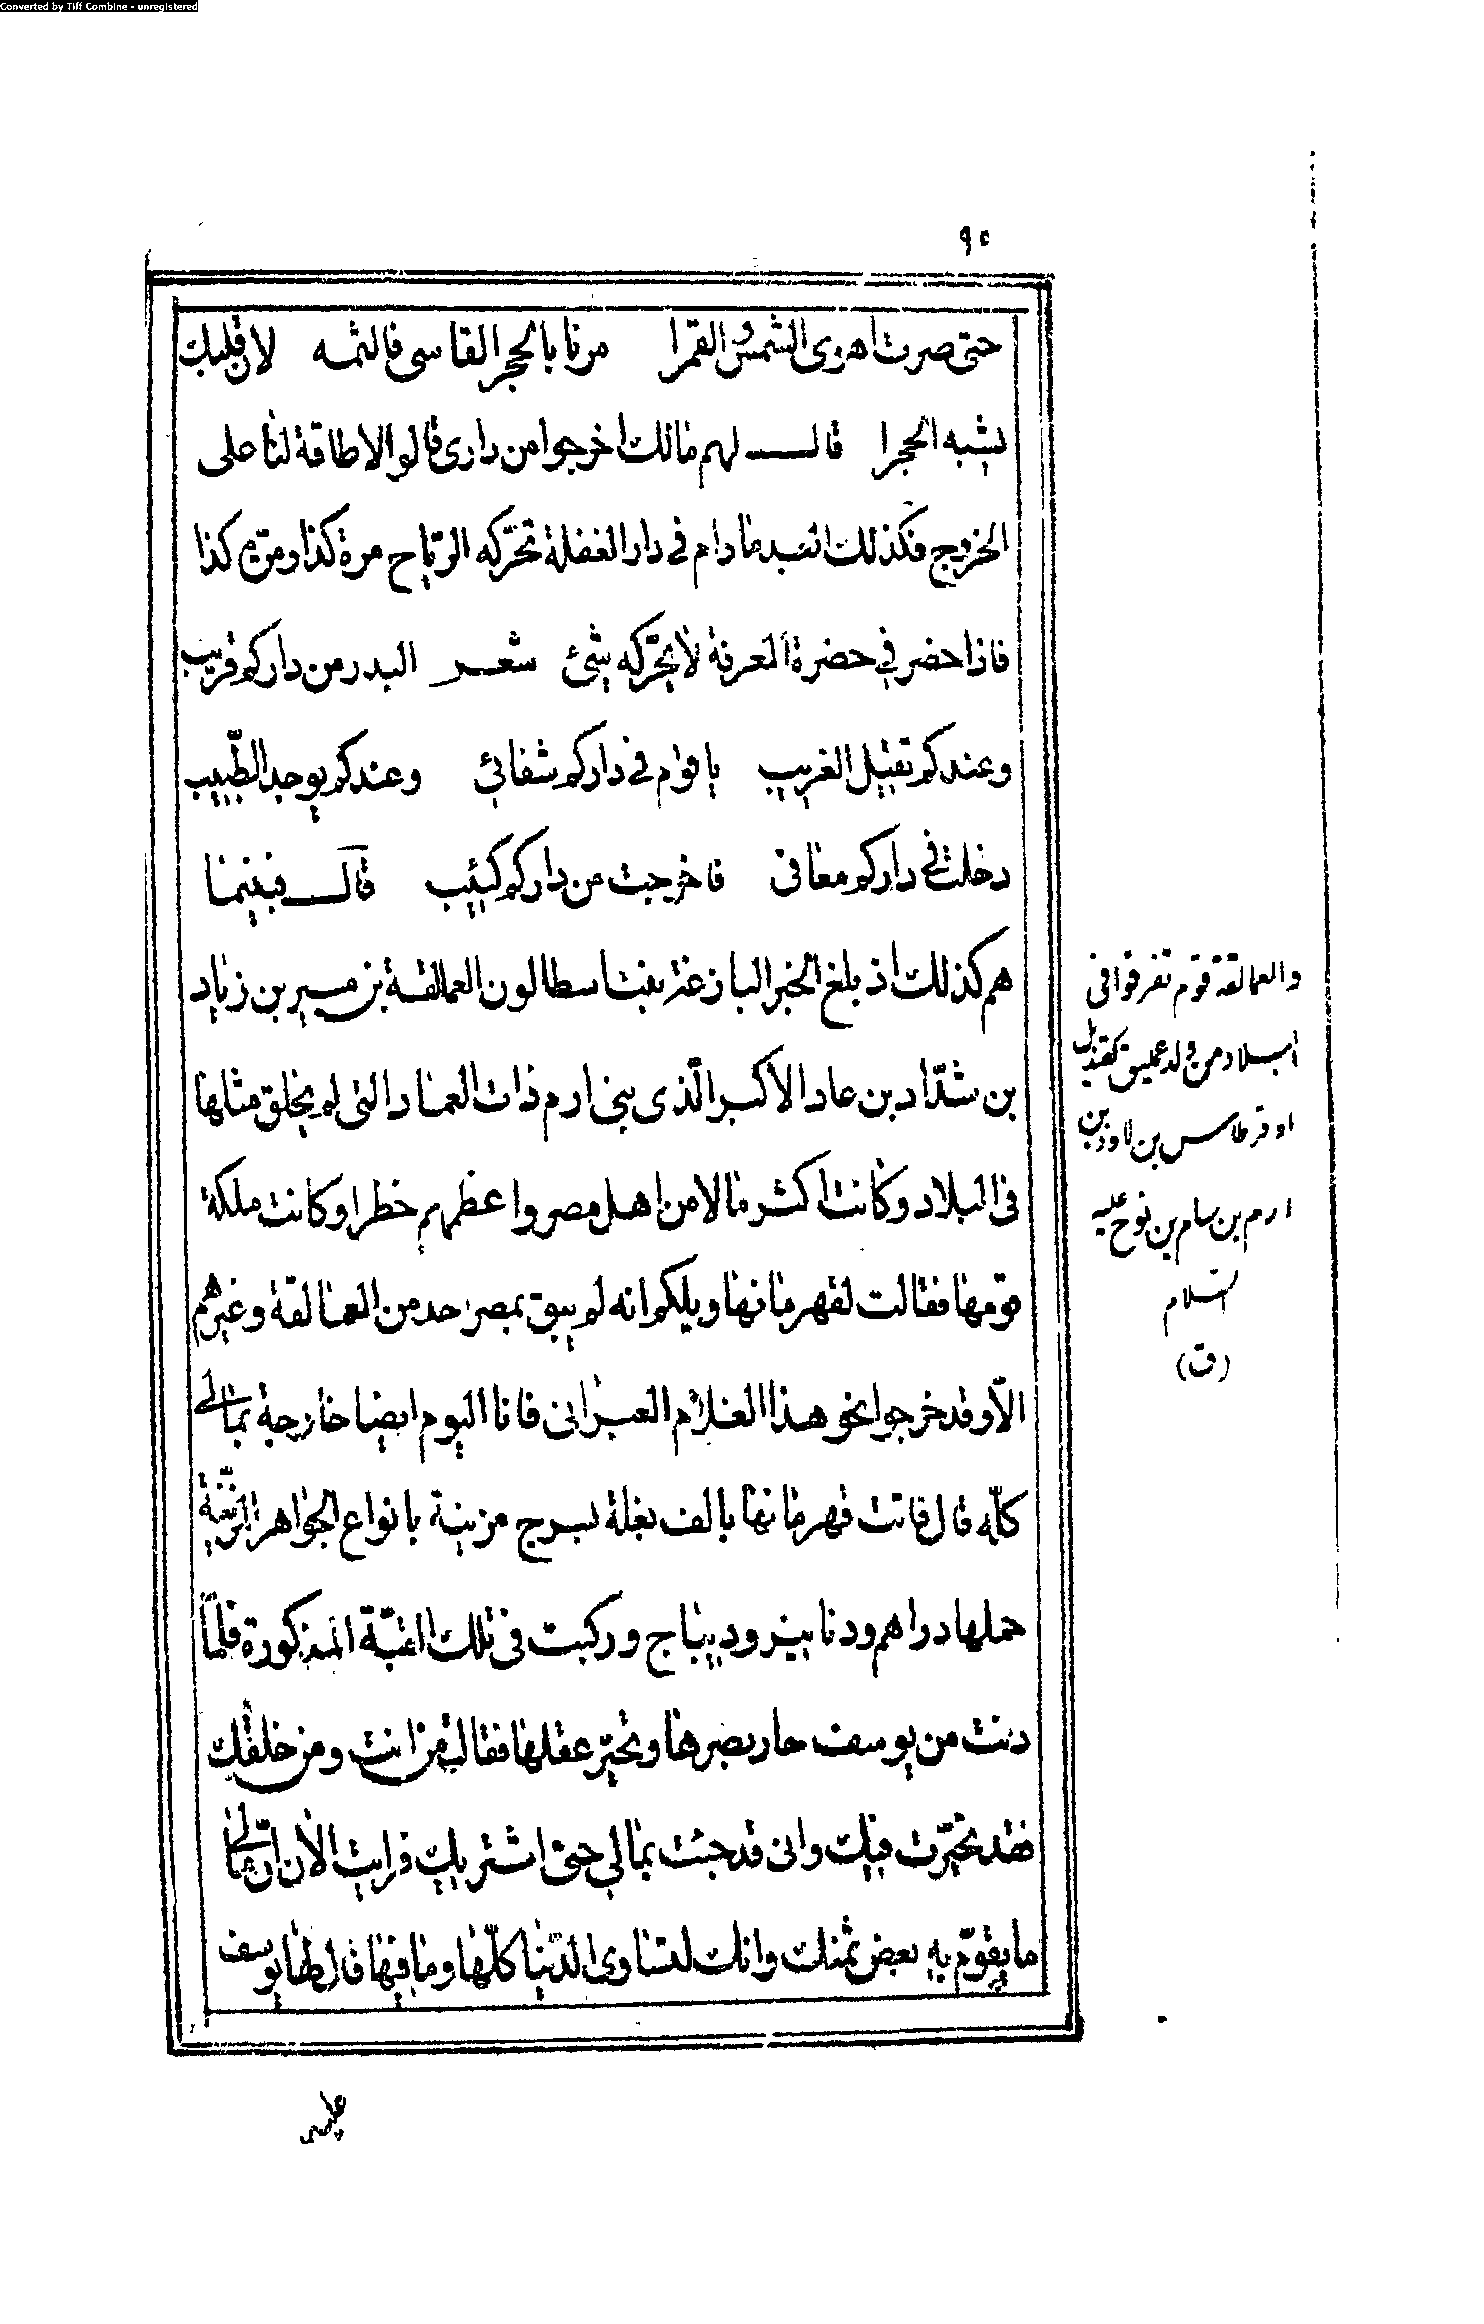 Converted by Tiff Combine - unregistered
٩٥
حتى صرت اهوى الشمس والقمرا مرنا بالحجر القاسى فالثمه لان قلبك
يشبه الحجرا قال لهم مالك اخرجوا من دارى قالوا لا طاقة لنا على
الخروج فكذلك العبد ما دام في دار الغفلة تحرّكه الرّياح مرة كذا ومرّة كذا
فاذا حضر في حضرة المعرفة لا يحرّكه شئ شعر البدر من داركم قريب
وعندكم تقتيل الغريب يا قوم في داركم شفائي وعندكم يوجد الطّبيب
دخلت في داركم معافى فاخرجت من داركم كئيب قال فبينما
هم كذلك اذ بلغ الخبر البازغة بنت اسطالون العمالقة بن مسير بن زياد
بن شدّاد بن عاد الاكبر الّذى بنى ارم ذات العماد التى لم يخلق مثلها
في البلاد وكانت اكثر مالا من اهل مصر واعظمهم خطرا وكانت ملكة
قومها فقالت لقهرمانها ويلكم انه لم يبق بمصر احد من العمالقة وغيرهم
الّا وقد خرجوا نحو هذا الغلام العبرانى فانا اليوم ايضا خارجة بمالي
كلّه قال فاتت قهرمانها بالف بغلة بسرج مزينة بانواع الجواهر
حملها دراهم ودنانير وديباج وركبت في تلك القبّة المذكورة فلمّا
دنت من يوسف حار بصرها وتحيّر عقلها فقالت من انت ومن خلقك
فقد تحيّرت فيك وانى قد جئت بمالي حتى اشتريك فرايت الان انّ مالي
ما يقوّم به بعض ثمنك وانك لتساوى الدّنيا كلّها وما فيها قال لها يوسف
عليه
والعمالقة قوم تفرقوا في
البلاد من ولد عمليق كقنديل
او قرطاس بن لاوذ بن
ارم بن سام بن نوح عليه
السلام
(ق)